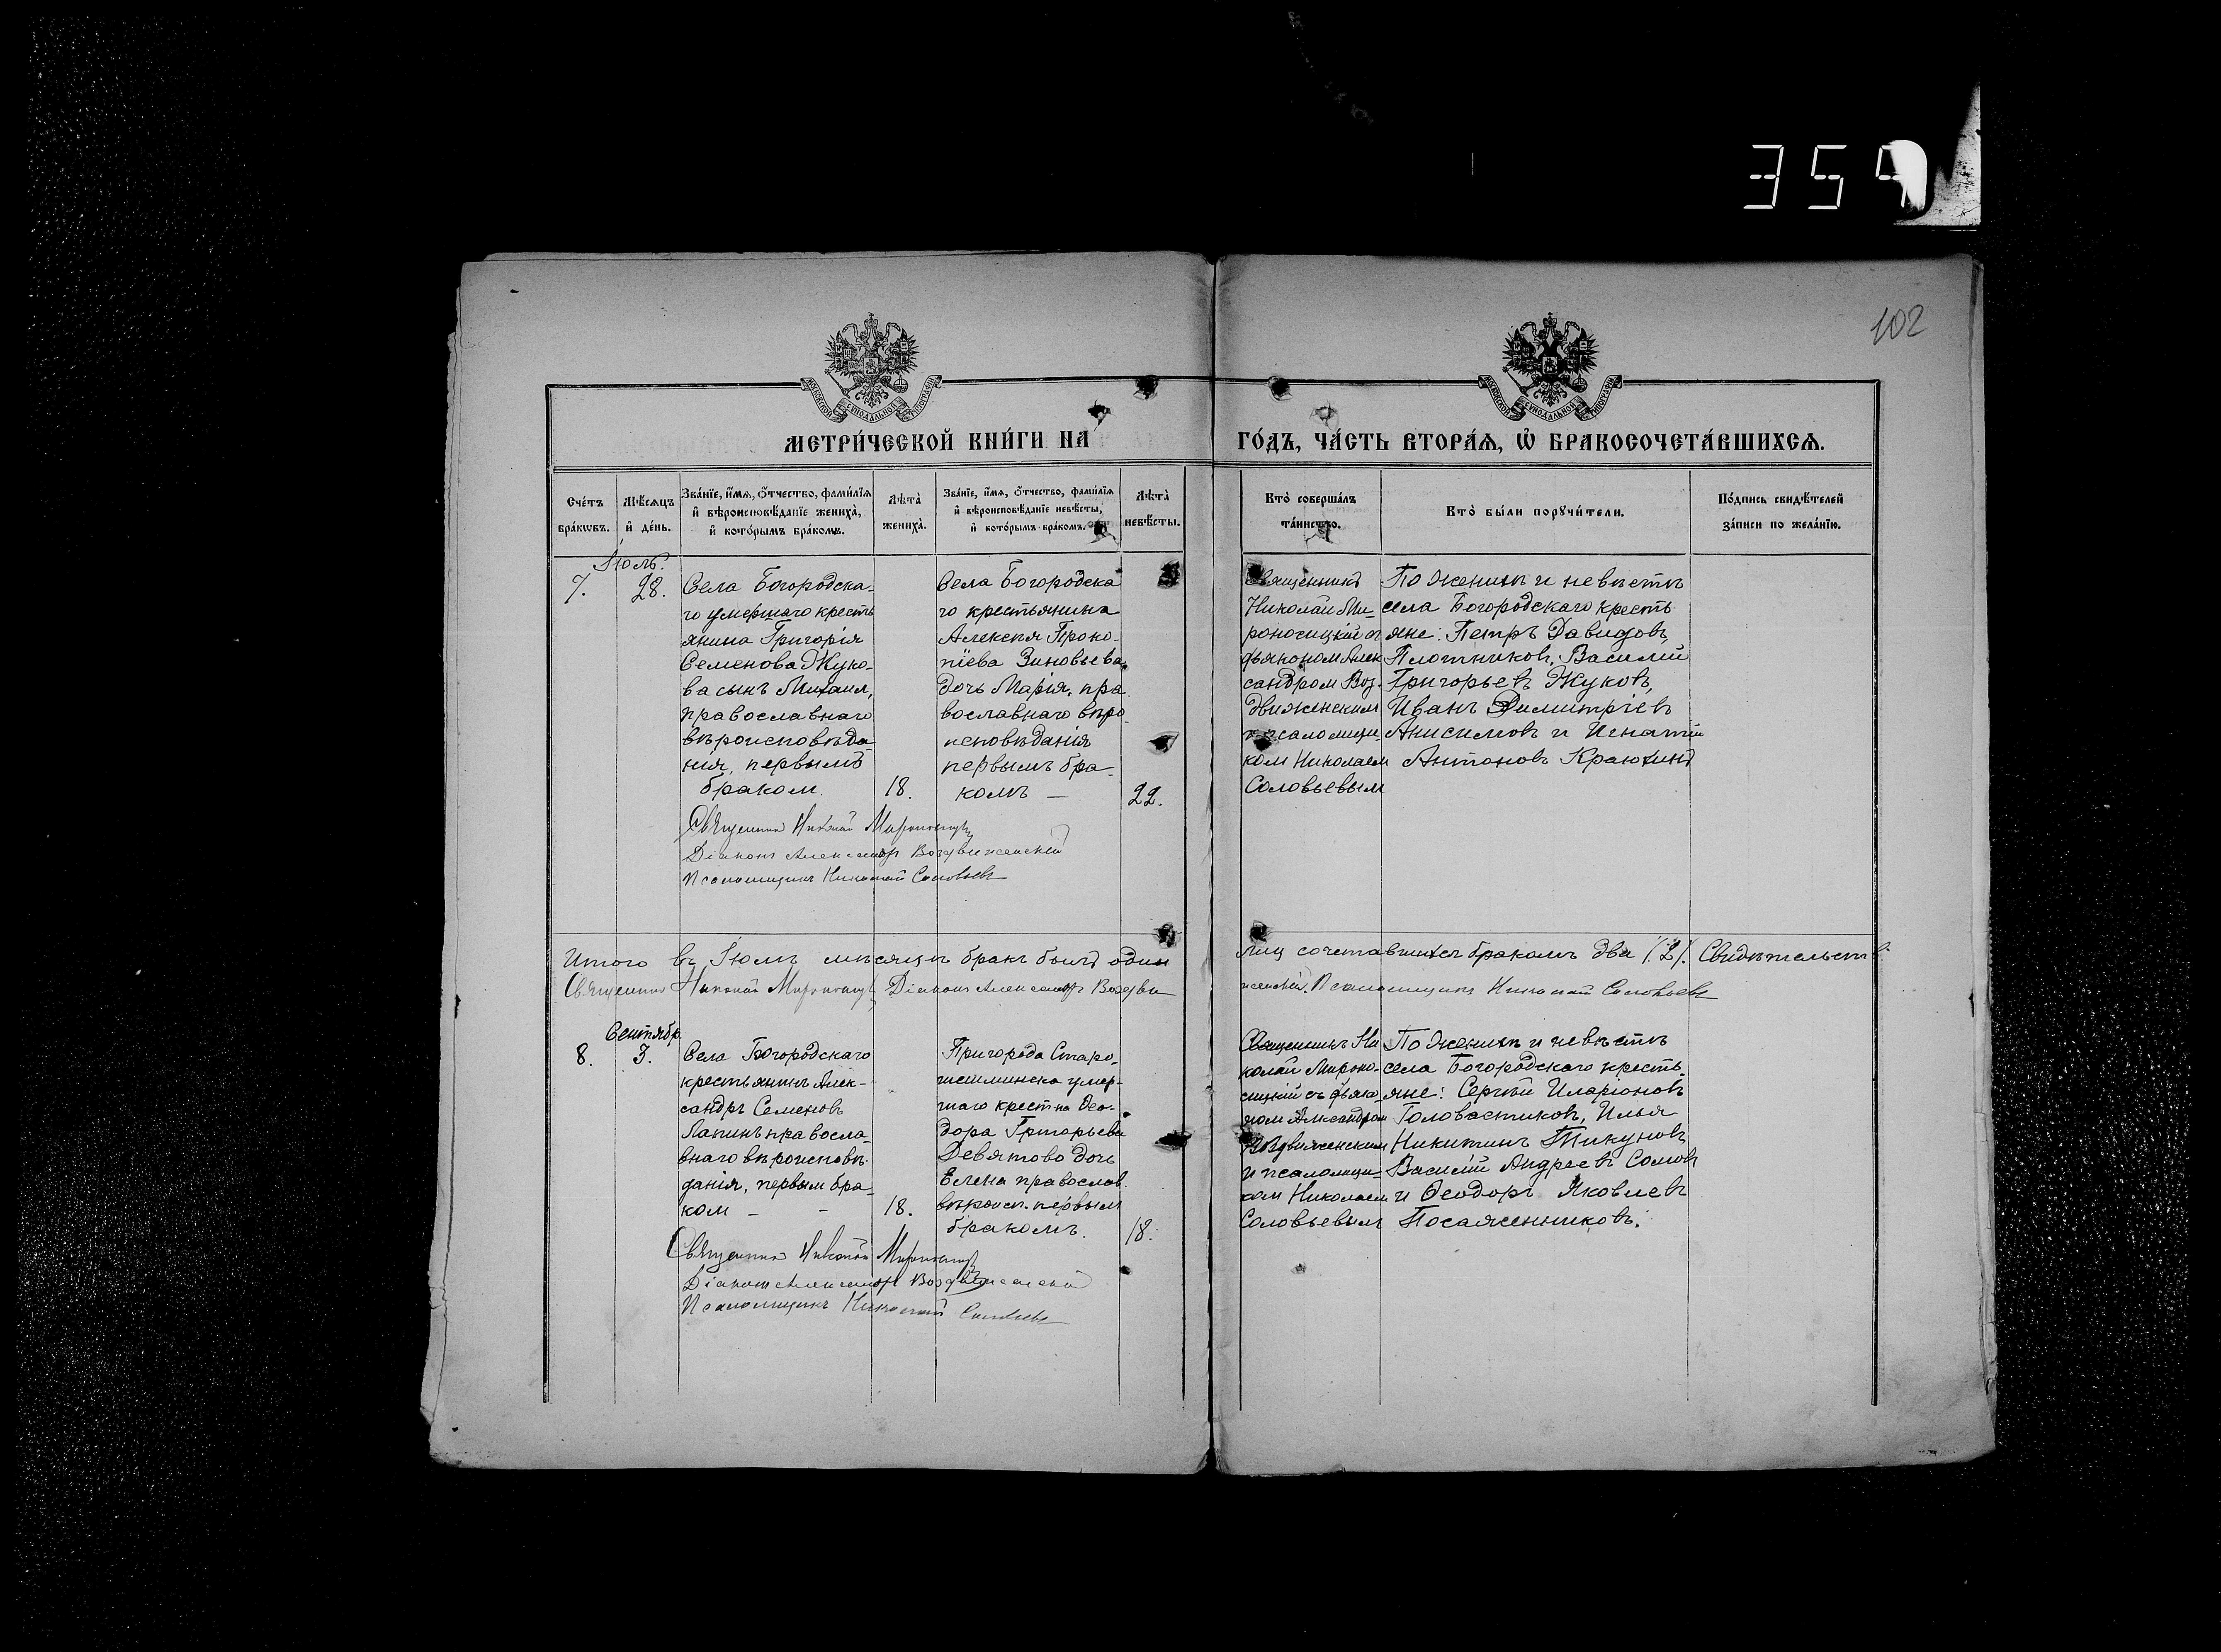 359
102
МОСКОВСКОЙ СѴНОДАЛЬНОЙ ТѴПОГРАФІИ
МОСКОВСКОЙ СѴНОДАЛЬНОЙ ТѴПОГРАФІИ
МЕТРИ́ЧЕСКОЙ КНИ́ГИ НА
ГО́ДЪ, ЧА́СТЬ ВТОРА́Ѧ, Ѡ҆ БРАКОСОЧЕТА́ВШИХСѦ.
Сче́тъ бра́кѡвъ.
Мѣ́сѧцъ и҆ де́нь.
Зва́нїе, и҆́мѧ, ѻ҆́тчество, фами́лїѧ
и҆ вѣроисповѣ́данїе жениха̀,
и҆ кото́рымъ бра́комъ.
Лѣ́та жениха̀.
Зва́нїе, и҆́мѧ, ѻ҆́тчество, фами́лїѧ
и҆ вѣроисповѣ́данїе невѣ́сты,
и҆ кото́рымъ бра́комъ.
Лѣ́та невѣ́сты.
Кто̀ соверша́лъ та́инство.
Кто̀ бы́ли порꙋчи́тели.
По́дпись свидѣ́телей за́писи по жела́нїю.
Іюль.
7.
28.
Села Богородска-
го умершаго кресть
янина Григорія
Семенова Жуко-
ва сынъ Михаил,
православнаго
вѣроисповѣда-
нія, первымъ
браком.
18.
Села Богородска
го крестьянина
Алексѣя Проко-
піева Зиновьева
дочь Марія, пра
вославнаго вѣро
исповѣданія
первымъ бра-
комъ —
22.
Священникъ
Николай Ми-
роносицкій съ
дьяконом Алек
сандром Воз-
движенским
и псаломщи-
ком Николаем
Соловьевым
По женихѣ и невѣстѣ
села Богородскаго кресть
яне: Петръ Давидовъ
Плотниковъ, Василій
Григорьевъ Жуковъ,
Иванъ Димитріевъ
Анисимовъ и Игнатій
Антоновъ Краюхинъ
Священникъ Николай Мироносицкій
Діаконъ Александръ Воздвиженскій
Псаломщикъ Николай Соловьевъ
Итого въ Іюлѣ мѣсяцѣ бракъ былъ один
лиц сочетавшихся бракомъ два (2). Свидѣтельств
Священникъ Николай Мироносицкій Діаконъ Александръ Воздви
женскій. Псаломщикъ Николай Соловьевъ
Сентябр
8.
3.
Села Богородскаго
крестьянинъ Алек-
сандръ Семеновъ
Лапинъ правосла-
внаго вѣроисповѣ-
данія, первым бра-
ком — —
18.
Пригорода Старо-
шешминска умер-
шаго крест-на Ѳео-
дора Григорьева
Девятово дочь
Елена православ.
вѣроисп. первым
бракомъ.
18.
Священникъ Ни
колай Мироно-
сицкій съ дьяко-
ном Александром
Воздвиженским
и псаломщи-
ком Николаем
Соловьевым
По женихѣ и невѣстѣ
села Богородскаго кресть-
яне: Сергѣй Иларіоновъ
Головастиковъ, Илья
Никитинъ Тикуновъ
Василій Андреевъ Сомов
и Ѳеодоръ Яковлевъ
Посаженниковъ.
Священникъ Николай Мироносицкій
Діаконъ Александръ Воздвиженскій
Псаломщикъ Николай Соловьевъ